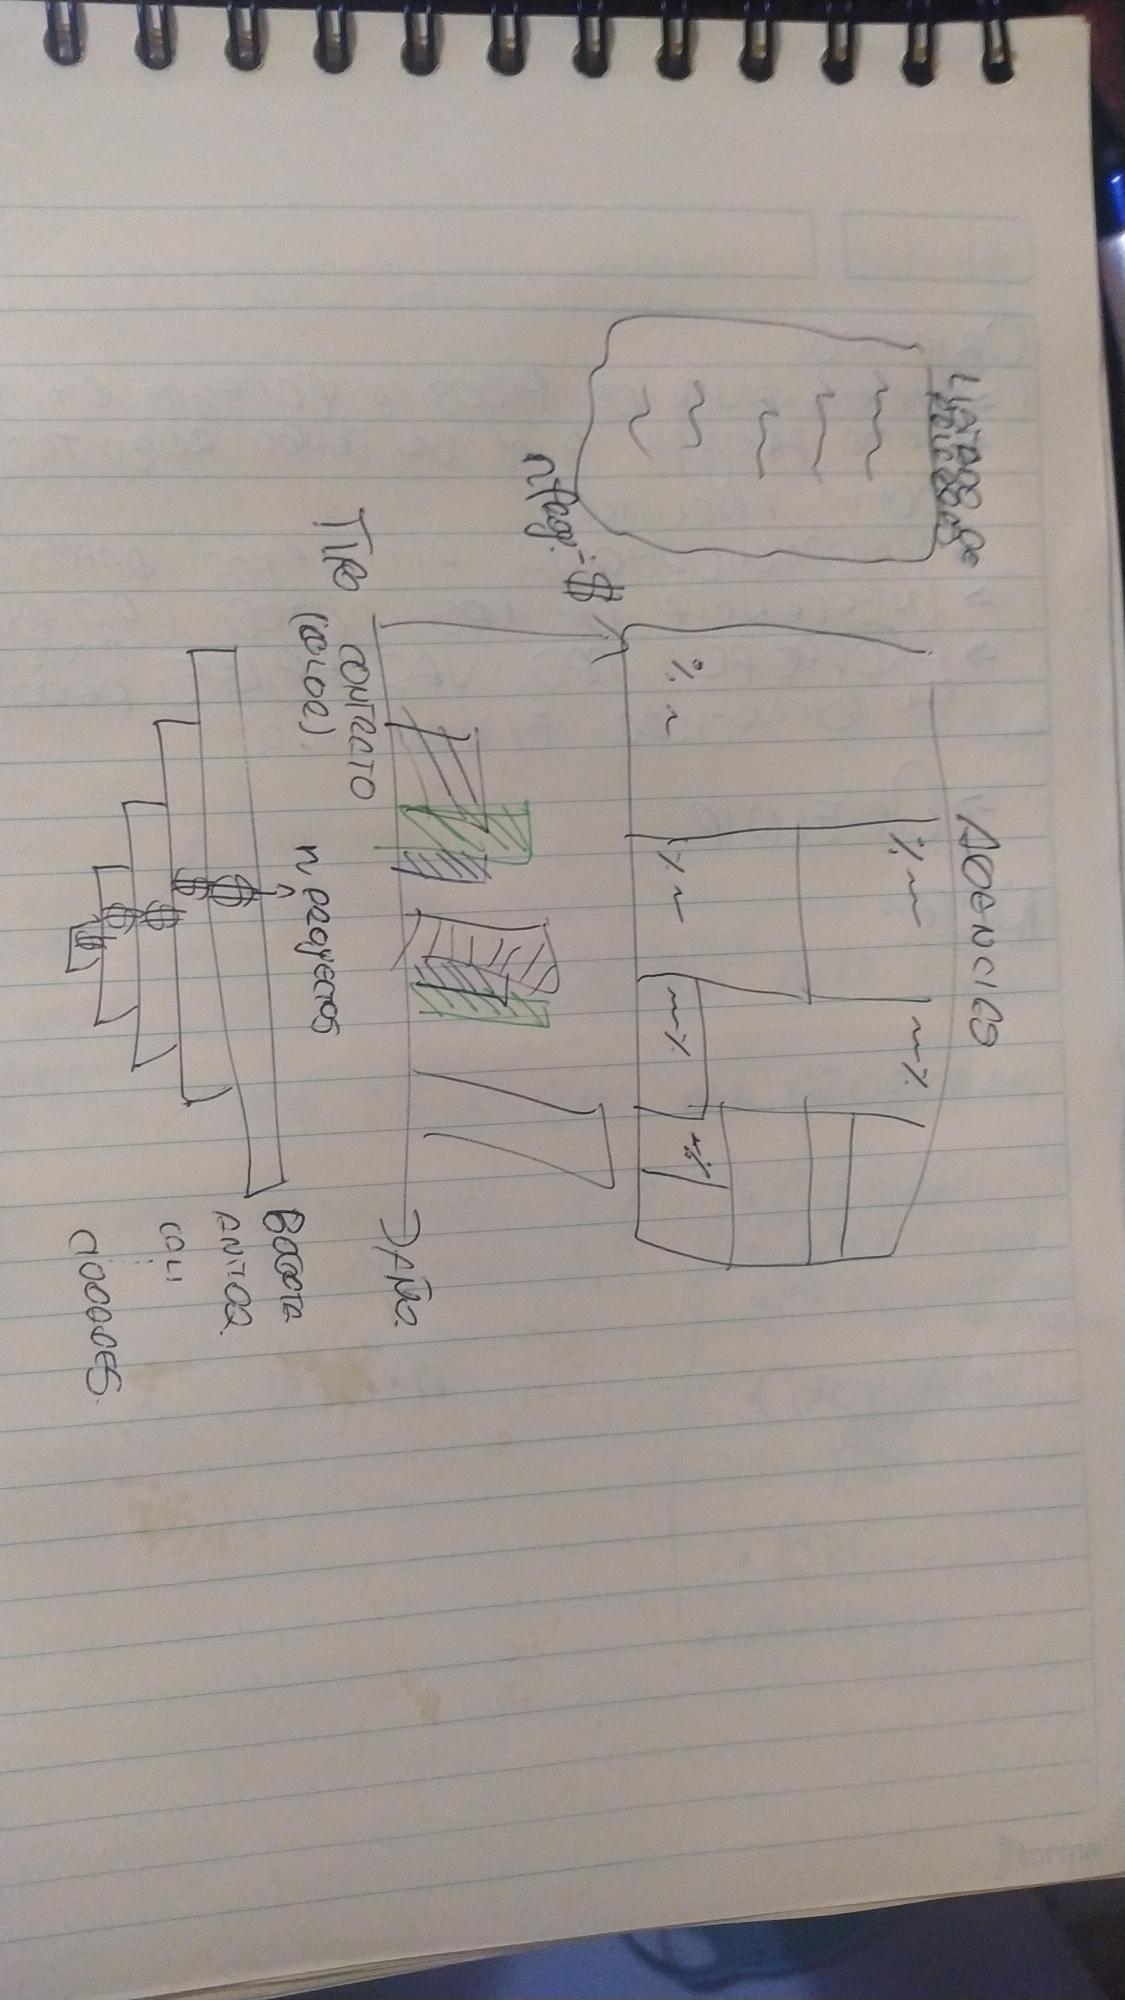 LISTADO DE
AGENCIAS
% ~
% ~
% ~
~ %
~ %
%
$
AÑO.
TIPO CONTRATO
(COLOR)
n proyectos
$
$
$
$
$
BOGOTA
ANTOQ.
CALI
CIUDADES.
Norma